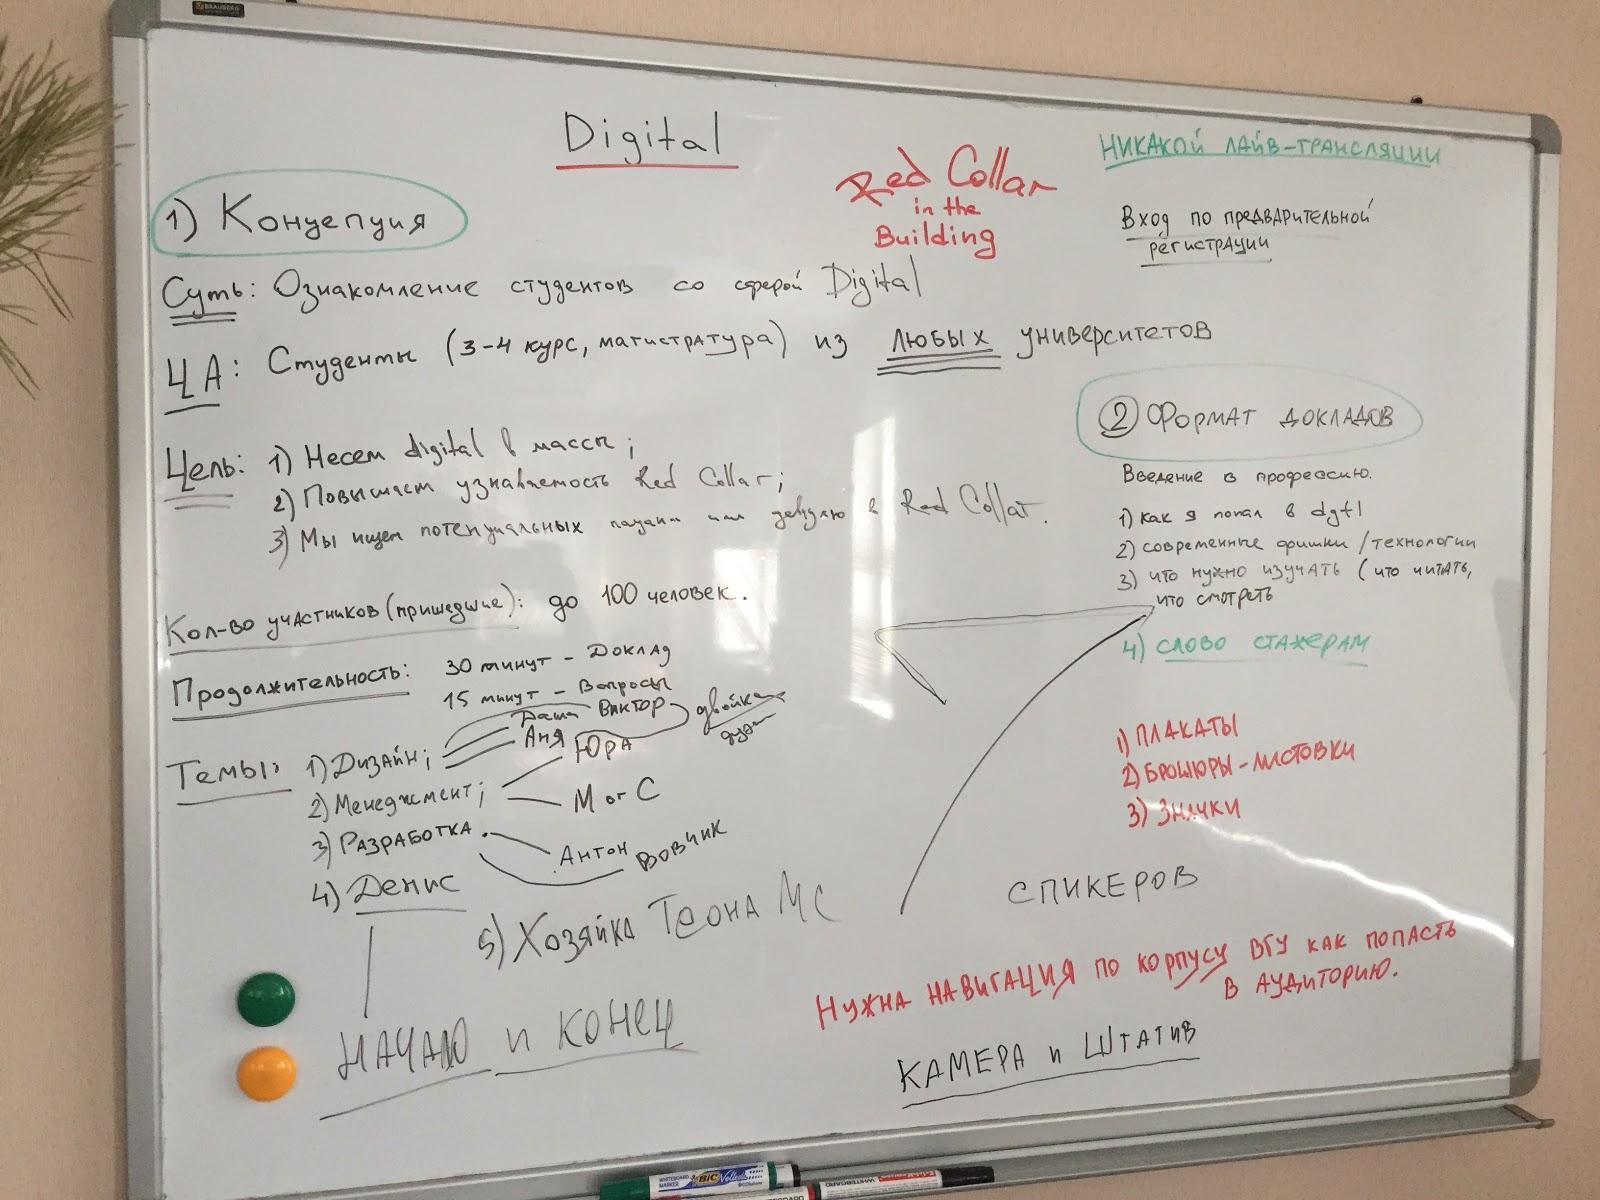 BRAUBERG
Digital
Red Collar
in the
Building
НИКАКОЙ ЛАЙВ-ТРАНСЛЯЦИИ
Вход по предварительной
регистрации
1) Концепция
Суть: Ознакомление студентов со сферой Digital
ЦА: Студенты (3-4 курс, магистратура) из любых университетов
Цель: 1) Несем digital в массы;
2) Повышаем узнаваемость Red Collar;
3) Мы ищем потенциальных в Red Collar.
Кол-во участников (пришедшие): до 100 человек.
Продолжительность: 30 минут - Доклад
15 минут - Вопросы
Темы: 1) Дизайн; Даша Виктор двойка
Аня
2) Менеджмент; Юра
М от С
3) Разработка. Антон Вовчик
4) Денис
5) Хозяйка Теона МС
НАЧАЛО и КОНЕЦ
2 Формат докладов
Введение в профессию.
1) как я попал в dgtl
2) современные фишки / технологии
3) что нужно изучать (что читать,
что смотреть
4) СЛОВО СТАЖЕРАМ
1) ПЛАКАТЫ
2) БРОШЮРЫ - ЛИСТОВКИ
3) ЗНАЧКИ
СПИКЕРОВ
НУЖНА НАВИГАЦИЯ ПО КОРПУСУ ВГУ КАК ПОПАСТЬ
В АУДИТОРИЮ.
КАМЕРА и ШТАТИВ
WHITEBOARD MARKER BIC Velleda